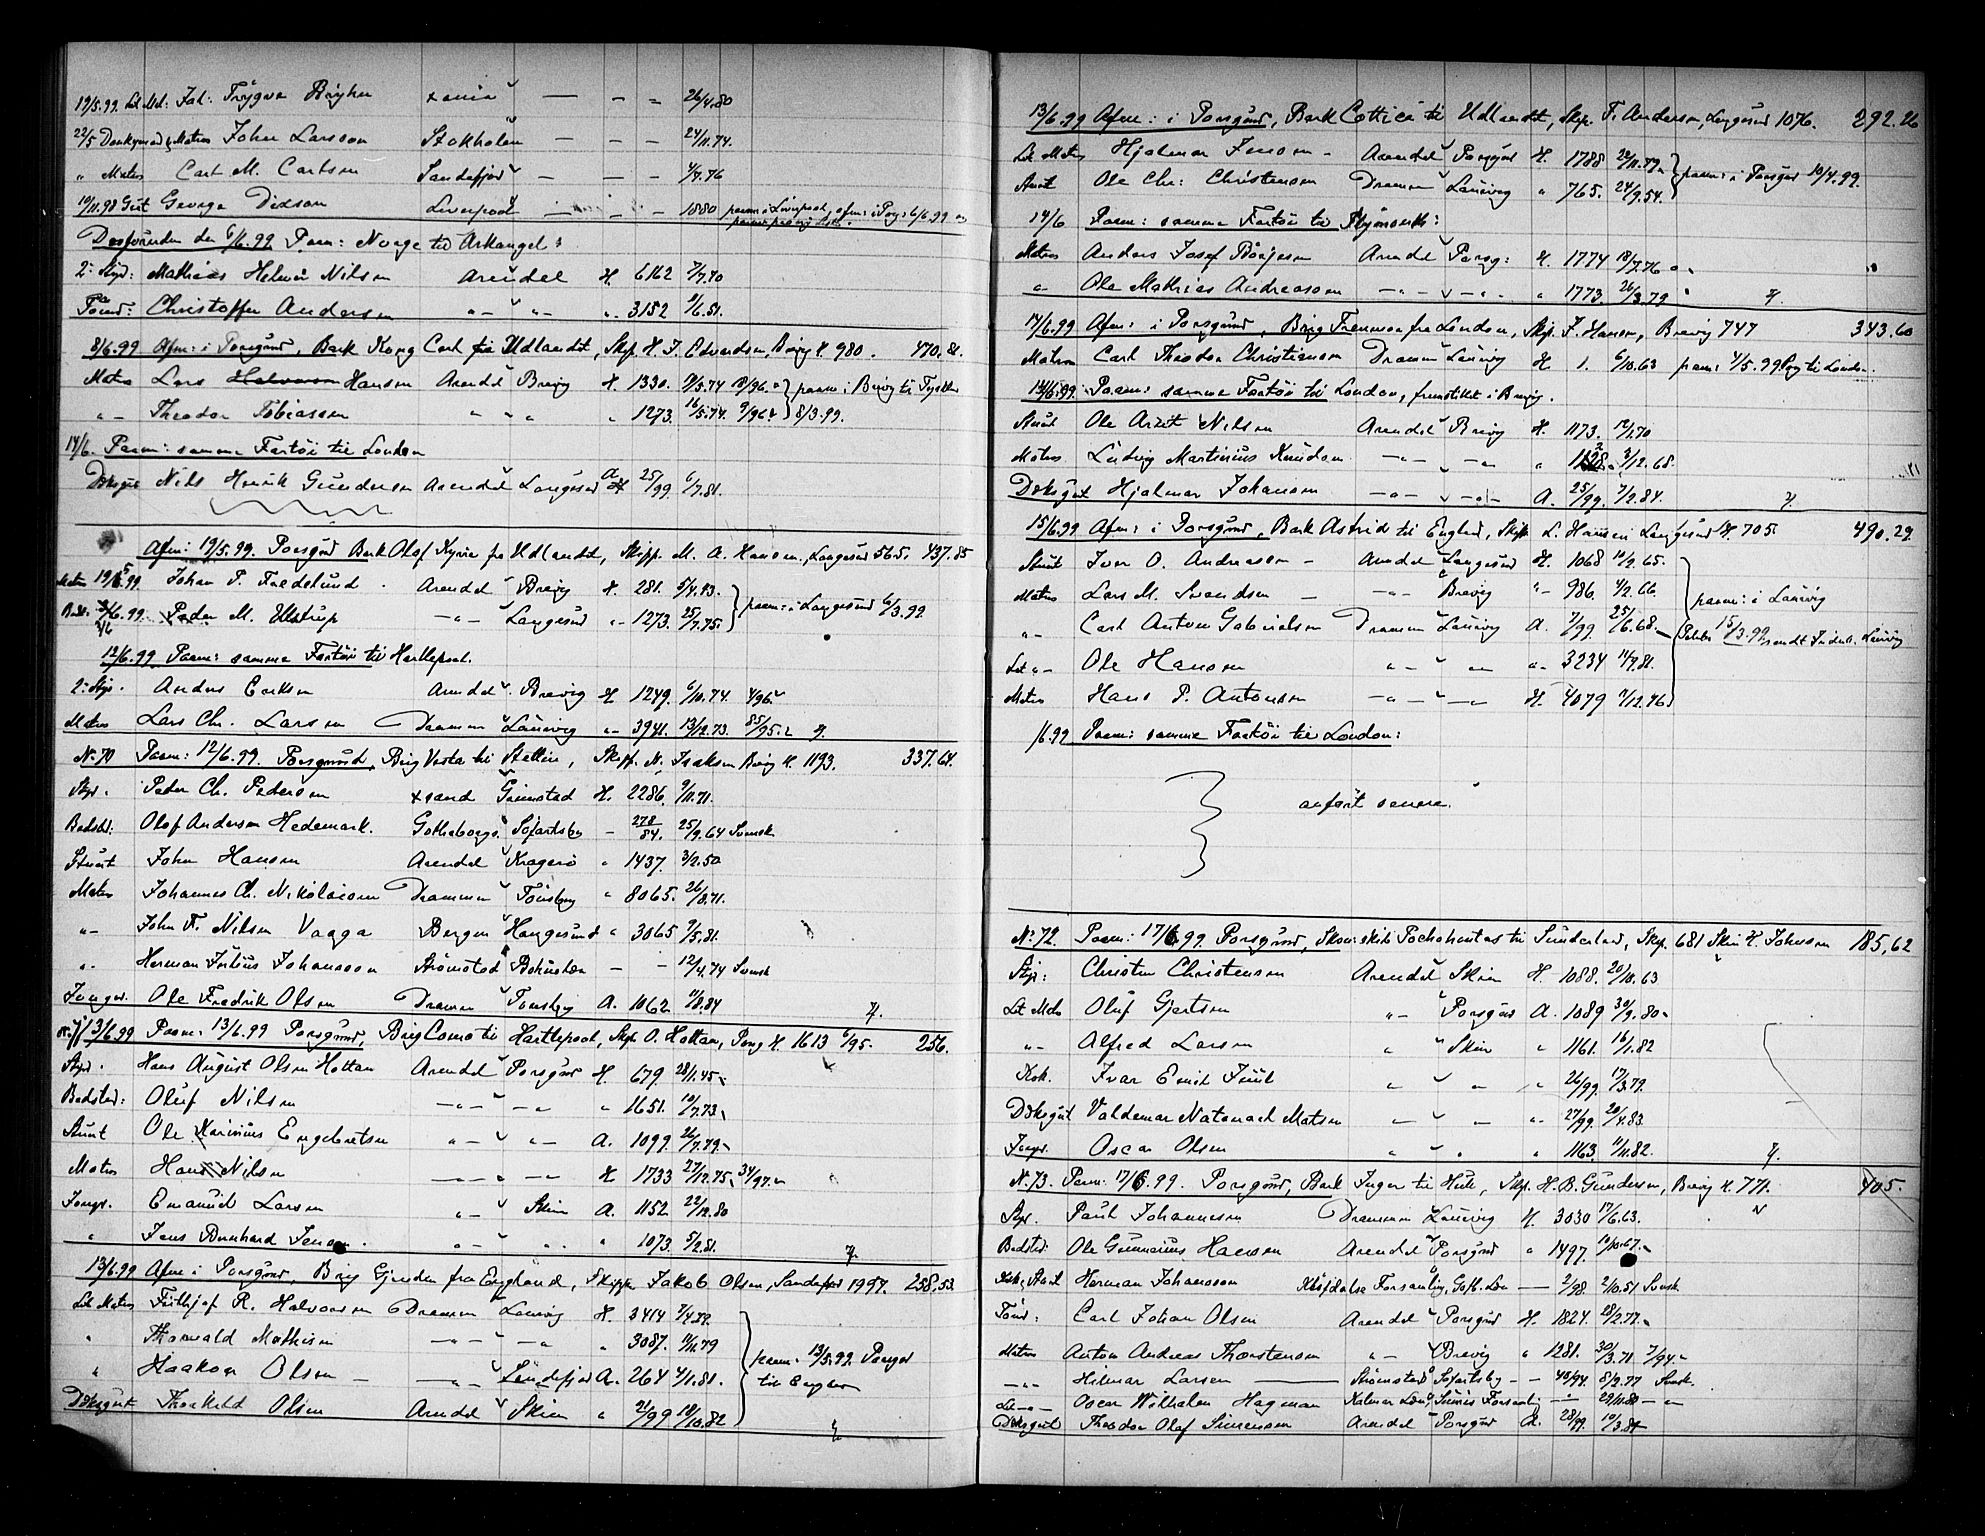 19/5.99. Let Md: Joh: Trygve x ania — — — 26/4.80
22/5 Matros John Larsson Stokholm — — — 24/11.74.
" Matros Carl M. Carlson Sandefjord — — — 4/4.76
George Didson Liverpool — — — 1880 paam: i Liverpool, afm: i Pors: 6/6.99
Desforuden den 6/6.99 Paam: Norge til Arkangel:
2: Styr: Mathias Nilsen Arendal H. 6162 7/7.70
Tømd: Christoffer Andersen " — " — " 3152 9/6.51.
8/6.99 Afm: i Porsgrund, Bark Kong Carl fra Udlandet, Skp. H. J. Edvardsen, Brevig H. 980. 470.81.
Matros Lars Halvorsen Hansen Arendal Brevig H. 1330. 9/5.74 paam: i Brevig til
" — Theodor Tobiassen " " " " 1273. 16/5.74. 8/3.99.
14/6. Paam: samme Fartøi til London
Dæksgut Nils Henrik Gundersen Arendal Langesund A 25/99. 6/7.81.
Afm: 19/5.99. Porsgrund Bark Olaf Kyrre fra Udlandet, Skipp. M. A. Hansen, Langesund 565. 437.85
Matros 19/5.99. Johan P. Fredelund Arendal Brevig H. 281. 5/4.43.
2/6.99. Peder M. Ulstrup — " — Langesund " 1273. 25/7.75. paam: i Langesund 6/3.99.
12/6.99. Paam: samme Fartøi til Hartlepool.
2: Styr. Anders Eriksen Arendal Brevig H 1249. 6/10.74
Matros Lars Chr. Larsen Drammen Laurvig " 3941. 13/12.73.
No. 70 Paam: 12/6.99. Porsgrund, Brig Vesta til Stettin, Skipp. N. Isaksen Brevig H. 1193. 337.64.
Styr. Peder Ch. Pedersen xsand Grimstad H. 2286. 9/11.71.
Bedstmd. Olof Anderson Hedemark. Gotheborgs Sjöfartsby — 278/84. 25/9.64 Svensk
Stuert John Hansen Arendal Kragerø " 1437. 3/2.50
Matros Johannes Ch. Nikolaisen Drammen Tønsberg " 8065. 26/8.71.
" — John F. Nilsen Vaaga Bergen Haugesund " 3065 9/5.81.
" Herman Julius Johansson Strømstad Bohuslen — — 12/4.74 Svensk
Jungm. Ole Fredrik Olsen Drammen Tønsberg A. 1062. 11/8.84
13/6.99 Paam: 13/6.99 Porsgrund, Brig Como til Hartlepool, Skp. O. Hottan, Porsg H. 1613 6/95. 256.
Styr. Hans August Olsen Hottan Arendal Porsgrund H. 679. 28/1.45
Bedstmd: Oluf Nilsen — " — — " 1651. 10/7.73
Stuert Ole Marinius Engebretsen " — " — A. 1099. 26/7.79
Matros Hans Nilsen — " — — H 1733 27/12.75. 34/97.
Jungm. Emanuel Larsen " — Skien A. 1152 22/12.80
" Jens Bernhard Jensen. " — " . " 1073. 5/2.81.
13/6.99 Afm: i Porsgrund, Brig Gjenden fra England, Skipp. Jakob Olsen, Sandefjord 1997. 258,53.
Let Matros Frithjof R. Halvorsen Drammen Laurvig H. 3414 7/4.79.
" Thorvald Mathisen — " — — " — " 3087. 11/11.79 paam: 13/5.99. Porsgr
" Haakon Olsen — — " — Sandefjord A. 264 4/1.81. til England
Dæksgut Thorkild Olsen Arendal Skien " 21/99 18/10.82
13/6.99 Afm: i Porsgrund, Bark Cottica til Udlandet, Skp. T. Andersen, Langesund 1076. 292.26
Let Matros Hjalmar Jensen — Arendal Porsgrund H. 1788 22/11.79.
Stuert Ole Chr: Christensen Drammen Laurvig " 765. 24/9.54. paam: i Porsgrund 10/4.99.
14/6 Paam: samme Fartøi til Plymouth:
Matros Anders Josef Börjeson Arendal Porsg: H. 1774 18/7.76
" Ole Mathias Andreassen — " — — " — . " 1773. 26/3.79
14/6.99 Afm: i Porsgrund, Brig Fremnæs fra London, Skp. J. Hansen, Brevig 747 343.60
Matros Carl Theodor Christiansen Drammen Laurvig H 1. 6/10.63 paam: 4/5.99 til London.
14/6.99. Paam: samme Fartøi til London, fremstillet i Brevig.
Stuert Ole Arnt Nilsen Arendal Brevig H. 1173. 12/1.70
Matros Ludvig Martinius Knudsen — " — — " 3/12.68.
Dæksgut Hjalmar Johansen — " — — " — A. 25/99. 7/2.84.
15/6.99 Afm: i Porsgrund, Bark Astrid til England, Skipp. L. Hansen, Langesund H. 705. 490.29.
Stuert Iver O. Andreassen — Arendal Langesund H. 1068 10/2.65.
Matros Lars M. Svendsen — " Brevig " 986. 4/2.66 paam: i Laurvig
" — Carl Anton Gabrielsen Drammen Laurvig A. 7/99. 25/6.68. 15/3.99
Let " — Ole Hansen " — " — " 3234 11/9.81.
Matros Hans P. Antonsen — " — " — H. 4079 7/12.76
/6.99 Paam: samme Fartøi til London:
anført senere.
No. 72. Paam: 17/6.99 Porsgrund, Pochahontas til Sunderland, Skp. 681 Skien H. Johnsen 185,62
Styr: Christen Christensen Arendal Skien H. 1088. 20/10.63
Let Matros Oluf Gjertsen " — Porsgrund A. 1089 30/9.80
" — Alfred Larsen " " Skien " 1161. 16/1.82
Kok. Ivar Emil Juul " " 26/99. 17/3.79.
Dæksgut Valdemar Natanael Matsen " — " — " 27/99. 20/4.83.
Jungm. Oscar Olsen " " " 1163. 11/11.82.
No. 73. Paam: 17/6.99. Porsgrund, Bark Inger til Hull, Skp. H. B. Gundersen, Brevig H. 771. 405.
Styr. Paul Johannesen Drammen Laurvig H. 3030 17/6.63.
Bedstmd: Ole Gunnarius Hansen Arendal Porsgrund " 1497. 10/10.67.
Kok, Stuert Herman Johansson Forsamling, Gotb. Län — 2/98. 2/10.51 Svensk.
Tømd: Carl Johan Olsen Arendal Porsgrund H. 1824. 28/2.77.
Matros Anton Andreas Thorstensen " — Brevig " 1281. 30/3.71 7/94.
— " — Hilmar Larsen — Strømstad Sjöfartsby — 40/94. 8/2.77 Svensk.
Let — " — Oscar Wilhelm Hagman Kalmar Län, Forsamling — 29/11.80 — " —
Dæksgut Theodor Olaf Simonsen Arendal Porsgrund A. 28/99. 10/3.84